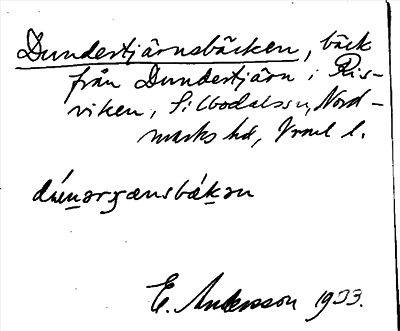 Dundertjärnsbäcken, bäck
från Dundertjärn i Ris-
viken, Silbodalssn, Nord-
marks hd, Vrml l.
E. Andersson 1933.